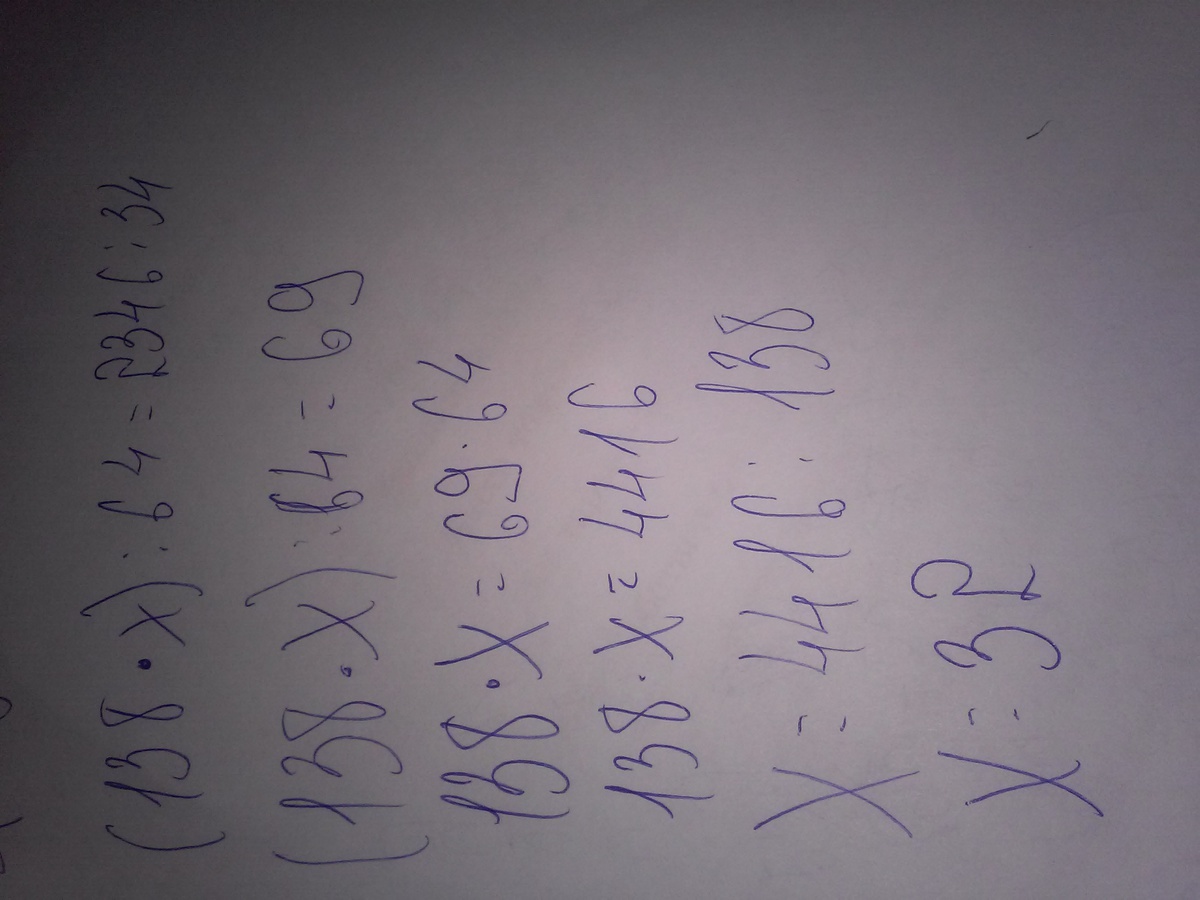 (138 · x) : 64 = 2346 : 34
(138 · x) : 64 = 69
138 · x = 69 · 64
138 · x = 4416
x = 4416 : 138
x = 32